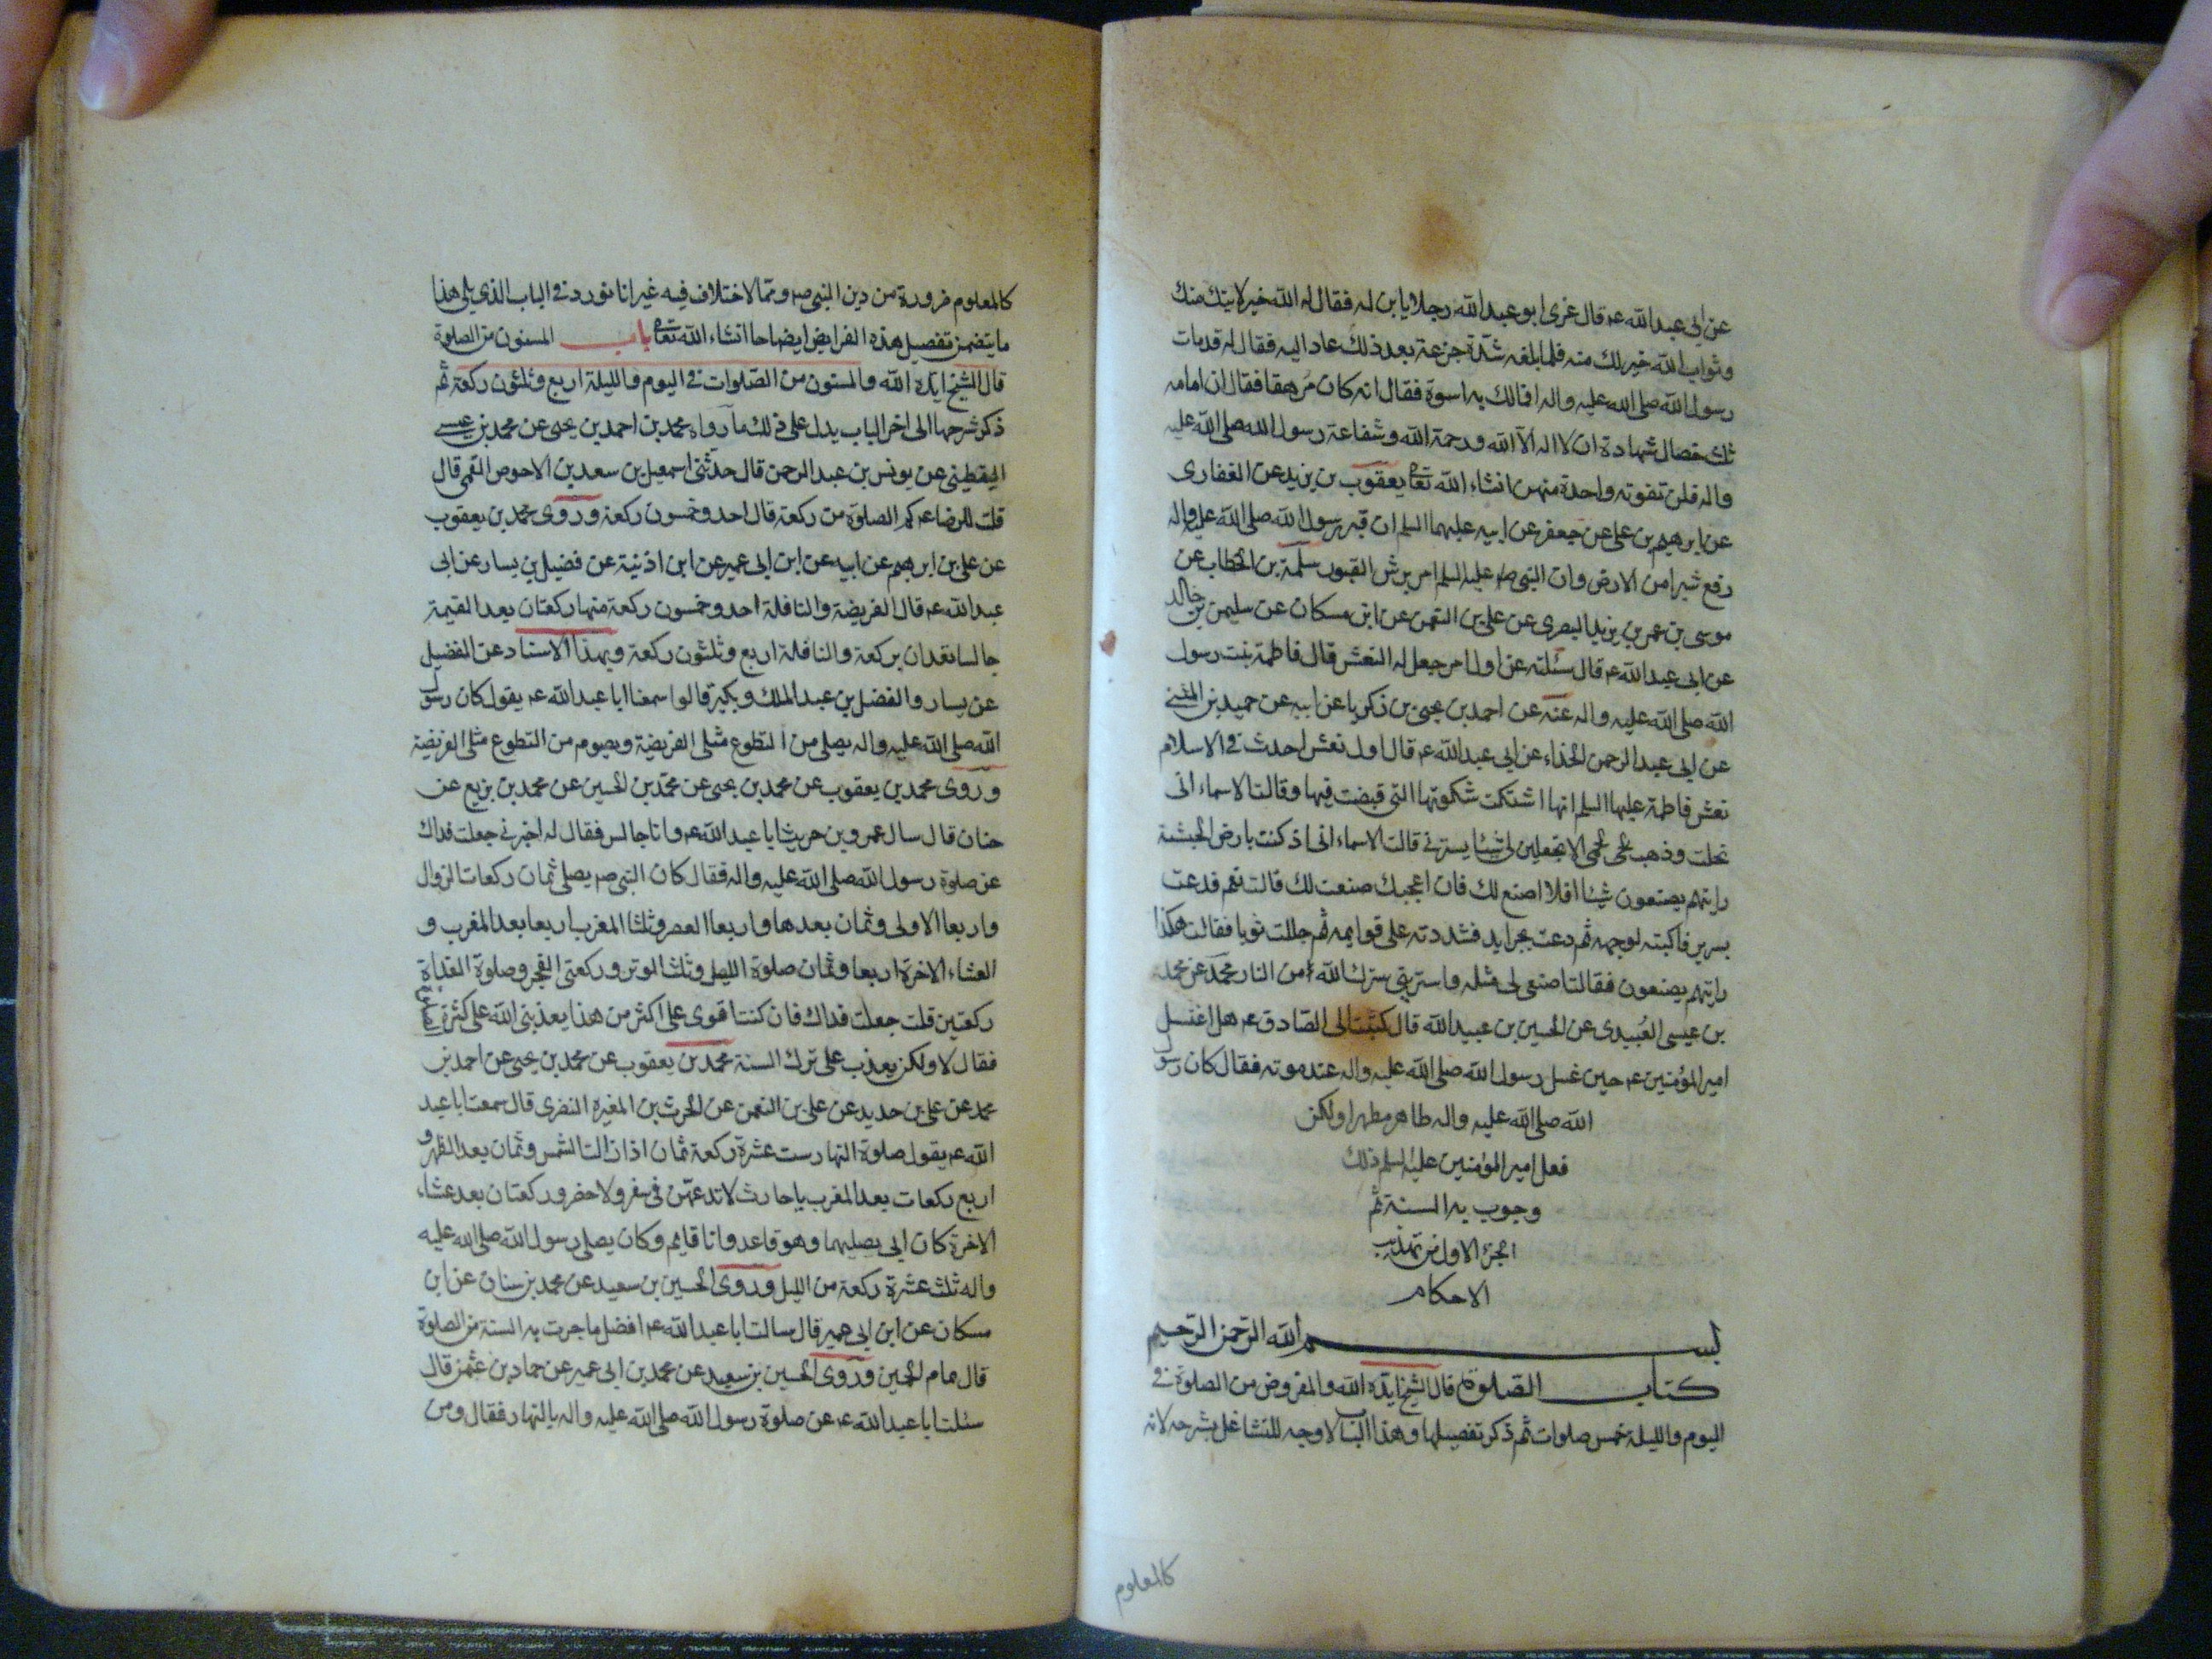 عن ابى عبد الله عم قال عزى ابو عبد الله رجلا بابن له فقال له الله خير لابنك منك
وثواب الله خير لك منه فلما بلغه شدة جزعه بعد ذلك عاد اليه فقال له قد مات
رسول الله صلى الله عليه واله افمالك به اسوة فقال انه كان مُرهقا فقال ان امامه
ثلث خصال شهادة ان لا اله الا الله ورحمة الله وشفاعة رسول الله صلى الله عليه
واله فلن تفوته واحدة منهن انشاء الله تعا يعقوب بن يزيد عن الغفارى
عن ابرهيم بن على عن جعفر عن ابيه عليهما السلم ان قبر رسول الله صلى الله عليه واله
رفع شبرا من الارض وان النبى صم عليه السلم امر برش القبور سلمة بن الخطاب عن
موسى بن عمر بن يزيد البصرى عن على بن النعمن عن ابن مسكان عن سليمن بن خالد
عن ابى عبد الله عم قال سئلته عن اول من جعل له النعش قال فاطمة بنت رسول
الله صلى الله عليه واله عنه عن احمد بن يحيى بن زكريا عن ابيه عن حميد بن المثنى
عن ابى عبد الرحمن الحذاء عن ابى عبد الله عم قال اول نعش احدث فى الاسلام
نعش فاطمة عليها السلم انها اشتكت شكوتها التى قبضت فيها وقالت الاسماء انى
نحلت وذهب لحمى الا تجعلين لى شئا يسترنى قالت الاسماء انى اذ كنت بارض الحبشة
رايتهم يصنعون شيئا افلا اصنع لك فان اعجبك صنعت لك قالت نعم فدعت
بسرير فاكبته لوجهه ثم دعت بجرايد فشددته على قوايمه ثم جللت ثوبا فقالت هكذا
رايتهم يصنعون فقالت اصنعى لى مثله واسترينى سترك الله من النار محمد عن محمد
بن عيسى العُبيدى عن الحسين بن عبيد الله قال كتبت الى الصادق عم هل اغتسل
امير المؤمنين عم حين غسل رسول الله صلى الله عليه واله عند موته فقال كان رسول
الله صلى الله عليه واله طاهر مطهر اولكن
فعل امير المؤمنين عليه السلم ذلك
وجوب به السنة ثم
الجزء الاول من تهذيب
الاحكام
بسم الله الرحمن الرحيم
كتاب الصلوة قال الشيخ ايده الله والمفروض من الصلوة فى
اليوم والليلة خمس صلوات ثم ذكر تفصيلها وهذا الباب لا وجه للتشاغل بشرحه لانه
كالمعلوم
كالمعلوم ضرورة من دين النبى صم ومما لا اختلاف فيه غير انا نورد فى الباب الذى يلى هذا
ما يتضمن تفصيل هذه الفرايض ايضاحا انشاء الله تعا باب المسنون من الصلوة
قال الشيخ ايده الله والمسنون من الصلوات فى اليوم والليلة اربع وثلثون ركعة ثم
ذكر شرحها الى اخر الباب يدل على ذلك ما رواه محمد بن احمد بن يحيى عن محمد بن عيسى
اليقطينى عن يونس بن عبد الرحمن قال حدثنى اسمعيل بن سعد بن الاحوص القمى قال
قلت للرضا عم كم الصلوة من ركعة قال احد وخمسون ركعة وروى محمد بن يعقوب
عن على بن ابرهيم عن ابيه عن ابن ابى عمير عن ابن اذنية عن فضيل بن يسار عن ابى
عبد الله عم قال الفريضة والنافلة احد وخمسون ركعة منها ركعتان بعد القيمة
جالسا تعدان بركعة والنافلة اربع وثلثون ركعة وبهذا الاسناد عن الفضيل
عن يسار والفضل بن عبد الملك وبكير قالوا سمعنا ابا عبد الله عم يقول كان رسول
الله صلى الله عليه واله يصلى من التطوع مثلى الفريضة ويصوم من التطوع مثلى الفريضة
وروى محمد بن يعقوب عن محمد بن يحيى عن محمد بن الحسين عن محمد بن بزيع عن
حنان قال سال عمرو بن حريث ابا عبد الله عم وانا جالس فقال له اخبرنى جعلت فداك
عن صلوة رسول الله صلى الله عليه واله فقال كان النبى صم يصلى ثمان ركعات الزوال
واربعا الاولى وثمان بعدها واربعا العصر وثلثا المغرب اربعا بعد المغرب و
العشاء الاخرة اربعا وثمان صلوة الليل وثلث الوتر وركعتى الفجر وصلوة الغداة
ركعتين قلت جعلت فداك فان كنت اقوى على اكثر من هذا يعذبنى الله على كثرة
فقال لا ولكن يعذب على ترك السنة محمد بن يعقوب عن محمد بن يحيى عن احمد بن
محمد عن على بن حديد عن على بن النعمن عن الحرث بن المغيرة النضرى قال سمعت ابا عبد
الله عم يقول صلوة النهار ست عشرة ركعة ثمان اذا زالت الشمس وثمان بعد الظهر و
اربع ركعات بعد المغرب يا حارث لا تدعهن فى سفر ولا حضر وركعتان بعد عشاء
الاخرة كان ابى يصليهما وهو قاعد وانا قايم وكان يصلى رسول الله صلى الله عليه
واله ثلث عشرة ركعة من الليل وروى الحسين بن سعيد عن محمد بن سنان عن ابن
مسكان عن ابن ابى عمير قال سالت ابا عبد الله عم افضل ما جرت به السنة من الصلوة
قال تمام الخمسين وروى الحسين بن سعيد عن محمد بن ابى عمير عن حماد بن عثمن قال
سئلت ابا عبد الله عم عن صلوة رسول الله صلى الله عليه واله بالنهار فقال ومن